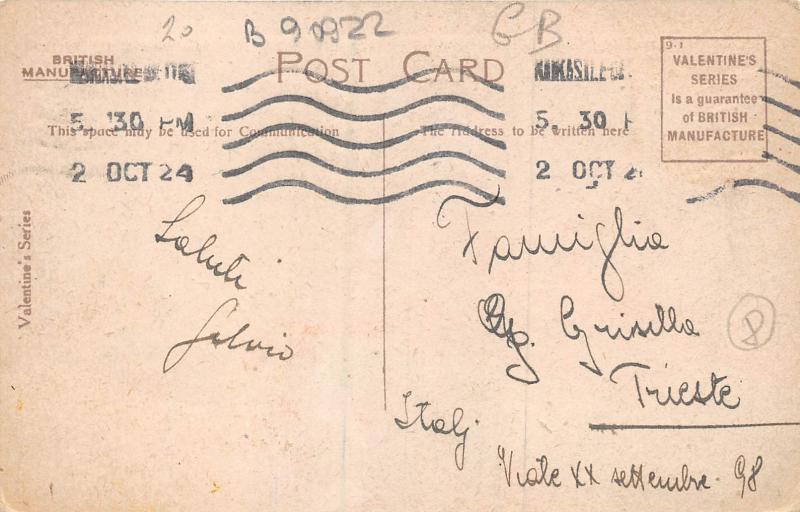 20
B 90922
GB
BRITISH
MANUFACTURE
POST CARD
9-1
VALENTINE'S
SERIES
Is a guarantee
of BRITISH
MANUFACTURE
5 30 PM
2 OCT 24
5 30 P
2 OCT 2
This space may be used for Communication
The Address to be written here
Valentine's Series
Saluti
Silvio
Famiglia
Grisilla
Trieste
Italy
Viale XX settembre 98
P